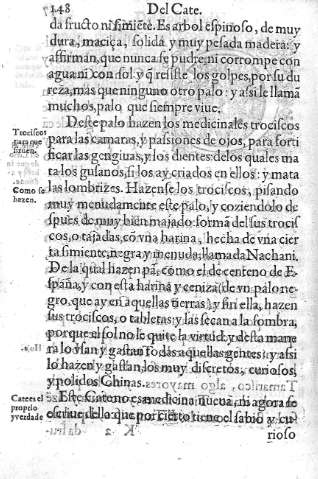 148 Del Cate.
da fructo ni simiẽte. Es arbol espinoso, de muy
dura, maciça, solida y muy pesada madera: y
affirman, que nunca se pudre, ni corrompe con
agua ni con sol. y q̃ resiste los golpes, por su du
reza, mas que ninguno otro palo: y assi le llamã
muchos, palo que siempre viue.
Deste palo hazen los medicinales trociscos
para las camaras, y passiones de ojos, para forti
ficar las gengiuas, y los dientes delos quales ma
ta los gusanos, si los ay criados en ellos: y mata
las lombrizes. Hazense los trociscos, pisando
muy menudamente este palo, y coziendolo de
spues de muy bien majado: formã del sus trocis
cos, o tajadas, cõ vna harina, hecha de vña cier
ta simiente, negra y menuda, llamada Nachani.
De la qual hazen pã, como el de centeno de E-
spaña, y con esta harina y ceniza de vn palo ne-
gro, que ay en aquellas tierras y sin ella, hazen
sus trociscos, o tabletas: y las secan a la sombra,
porque el sol no le quite la virtud, y desta mane
ra lo vsan y gastan todas aquellas gentes: y assi
lo hazen y gastan los muy discretos, curiosos,
y polidos Chinas.
Este Cate no es medicina nueua, ni agora se
escriue dello que por cierto tiene el sabio y cu
rioso
Trociscos
para que
Como se
hazen.
Cate es el
proprio
y verdade
K 2